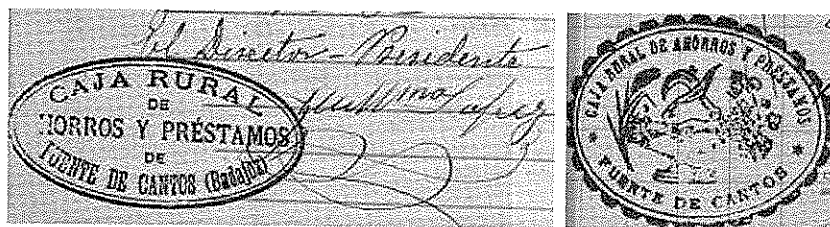 El Director-Presidente
CAJA RURAL
DE
HORROS Y PRÉSTAMOS
DE
FUENTE DE CANTOS (Badajoz)
Lopez
CAJA RURAL DE AHORROS Y PRÉSTAMOS
* FUENTE DE CANTOS *